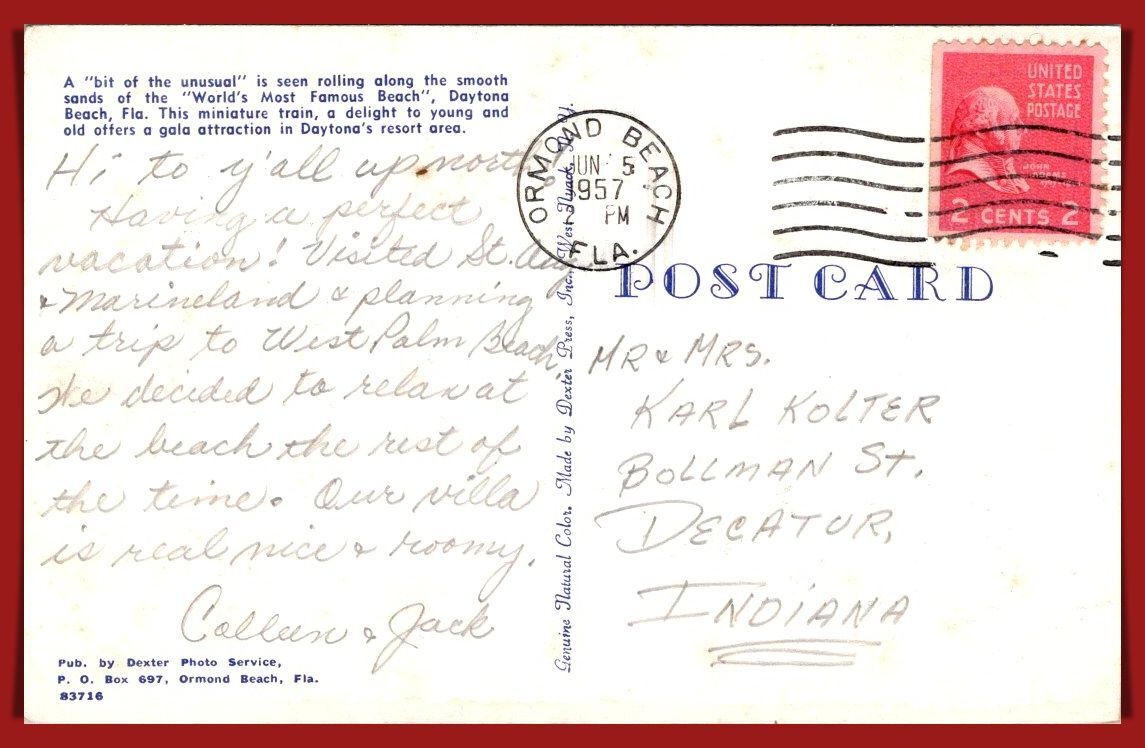 A "bit of the unusual" is seen rolling along the smooth
sands of the "World's Most Famous Beach", Daytona
Beach, Fla. This miniature train, a delight to young and
old offers a gala attraction in Daytona's resort area.
Hi to y'all up north,
Having a perfect
vacation! Visited St. Aug.
& Marineland & planning
a trip to West Palm Beach.
We decided to relax at
the beach the rest of
the time. Our villa
is real nice & roomy.
Colleen & Jack
Pub. by Dexter Photo Service,
P. O. Box 697, Ormond Beach, Fla.
83716
Genuine Natural Color. Made by Dexter Press, Inc. West Nyack, N. Y.
ORMOND BEACH
JUN 5
1957
PM
FLA.
UNITED
STATES
POSTAGE
JOHN
ADAMS
2 CENTS 2
POST CARD
MR & MRS.
KARL KOLTER
BOLLMAN St.
DECATUR,
INDIANA